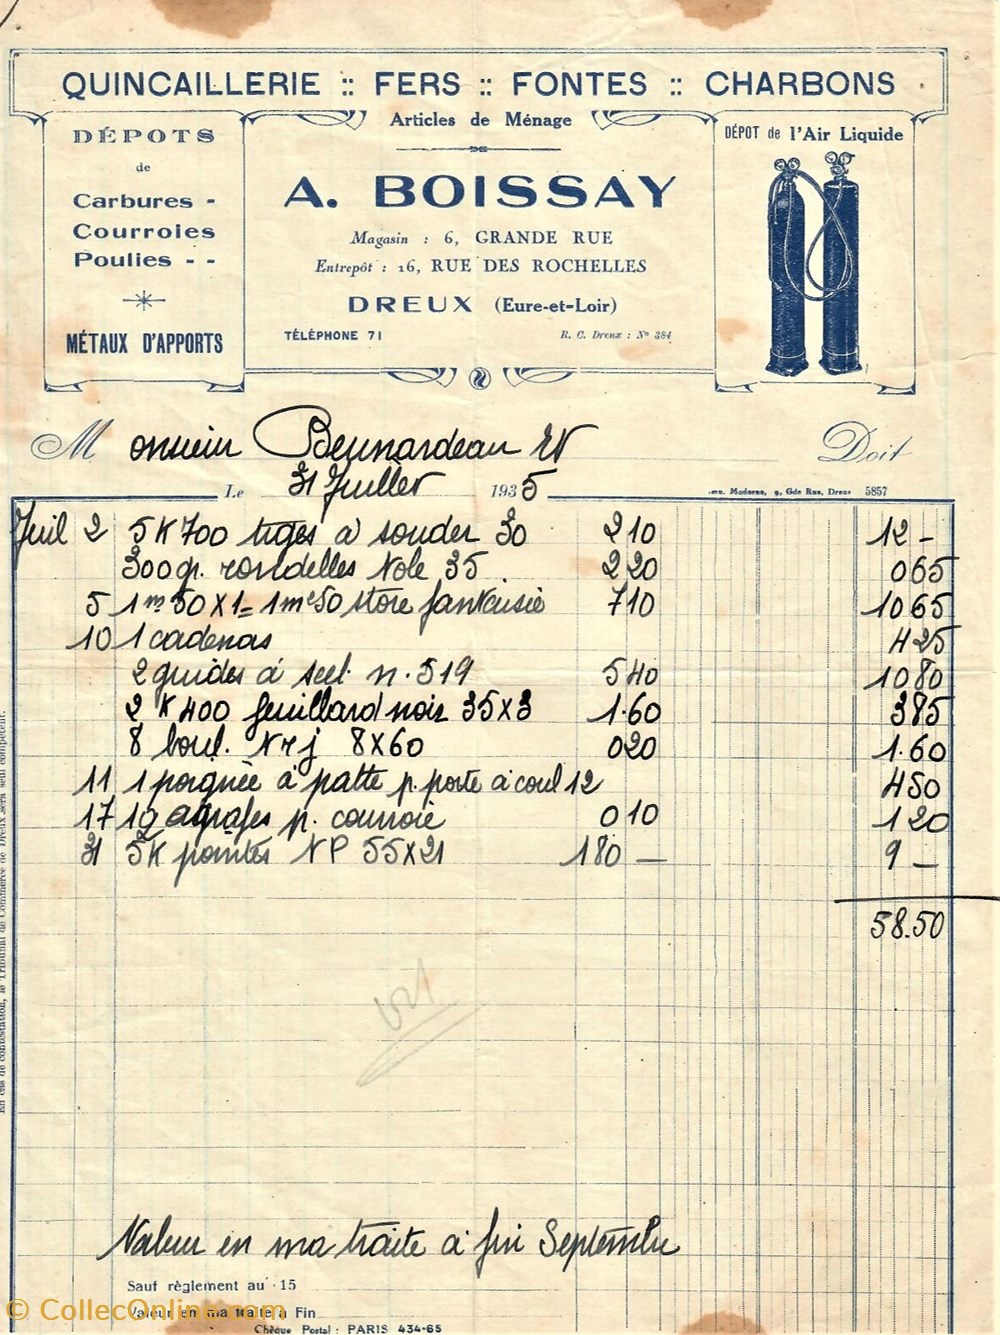 QUINCAILLERIE :: FERS :: FONTES :: CHARBONS
Articles de Ménage
DÉPOTS
de
Carbures -
Courroies
Poulies - -
MÉTAUX D'APPORTS
A. BOISSAY
Magasin : 6, GRANDE RUE
Entrepôt : 16, RUE DES ROCHELLES
DREUX (Eure-et-Loir)
TÉLÉPHONE 71 R. C. Dreux : N° 384
DÉPOT de l'Air Liquide
Monsieur Doit
Le 31 Juillet 1935
Moderne, 9, Gde Rue, Dreux 5857
Juil 2 5K700 tiges à souder 30 210 12 -
300gr. rondelles tole 35 220 065
5 1m50 x 1 = 1me50 store fantaisie 710 1065
10 1 cadenas 425
2 guides à scel. n. 519 540 1080
2K400 feuillard noir 35x3 1.60 385
8 boul. 8x60 020 1.60
11 1 poignée à patte p. porte à coul 12 450
17 12 agrafes p. courroie 010 120
31 5K pointes NP 55x21 180 - 9 -
58.50
Valeur en ma traite à fin Septembre
Sauf règlement au 15
Valeur en ma traite à Fin
Chèque Postal : PARIS 434-65
En cas de contestation, le Tribunal de Commerce de Dreux sera seul compétent.
© CollecOnline.com